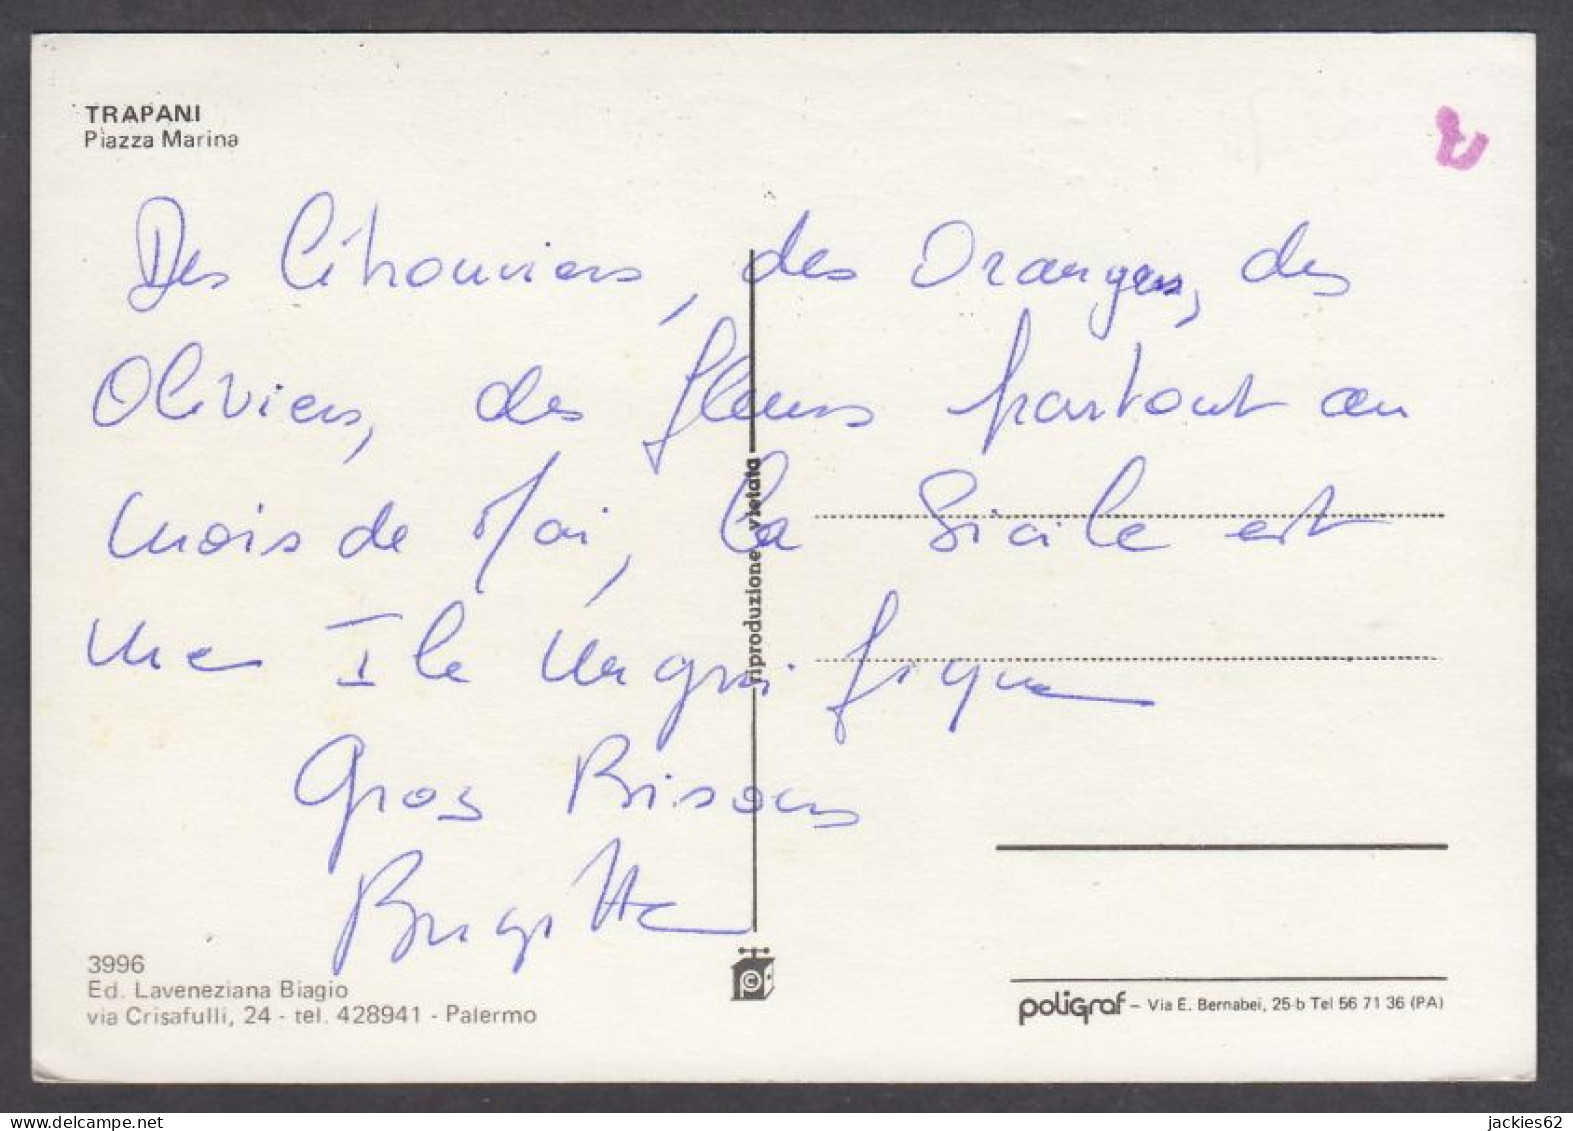 TRAPANI
Piazza Marina
Des Citronniers, des Oranges, des
Oliviers, des fleurs partout au
mois de Mai, la Sicile est
une Ile Magnifique
Gros Bisous
Brigitte
riproduzione vietata
3996
Ed. Laveneziana Biagio
via Crisafulli, 24 - tel. 428941 - Palermo
©
poligraf – Via E. Bernabei, 25-b Tel 56 71 36 (PA)
jackies62